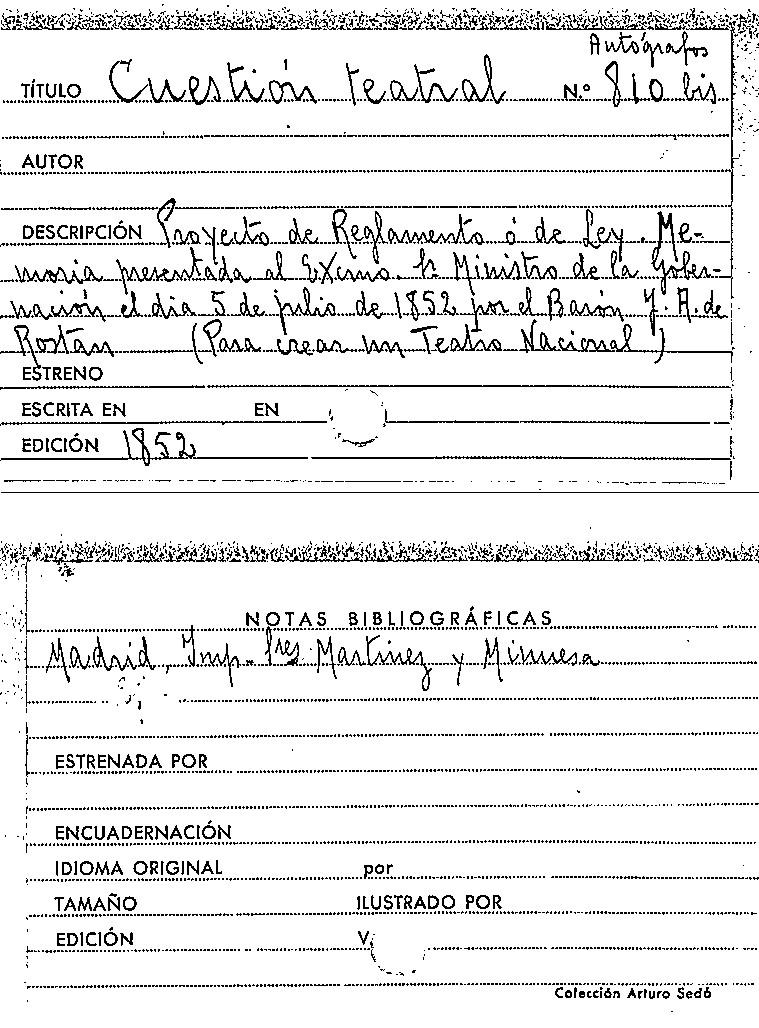 Autógrafos
TÍTULO Cuestión teatral N.º 810 bis
AUTOR
DESCRIPCIÓN Proyecto de Reglamento ó de Ley. Me-
moria presentada al Excmo. Sr. Ministro de la Gober-
nación el dia 5 de julio de 1852 por el Barón J. A. de
Rostan (Para crear un Teatro Nacional)
ESTRENO
ESCRITA EN EN
EDICIÓN 1852
NOTAS BIBLIOGRÁFICAS
Madrid, Imp. Sres Martinez y Minuesa
ESTRENADA POR
ENCUADERNACIÓN
IDIOMA ORIGINAL por
TAMAÑO ILUSTRADO POR
EDICIÓN V.
Colección Arturo Sedó